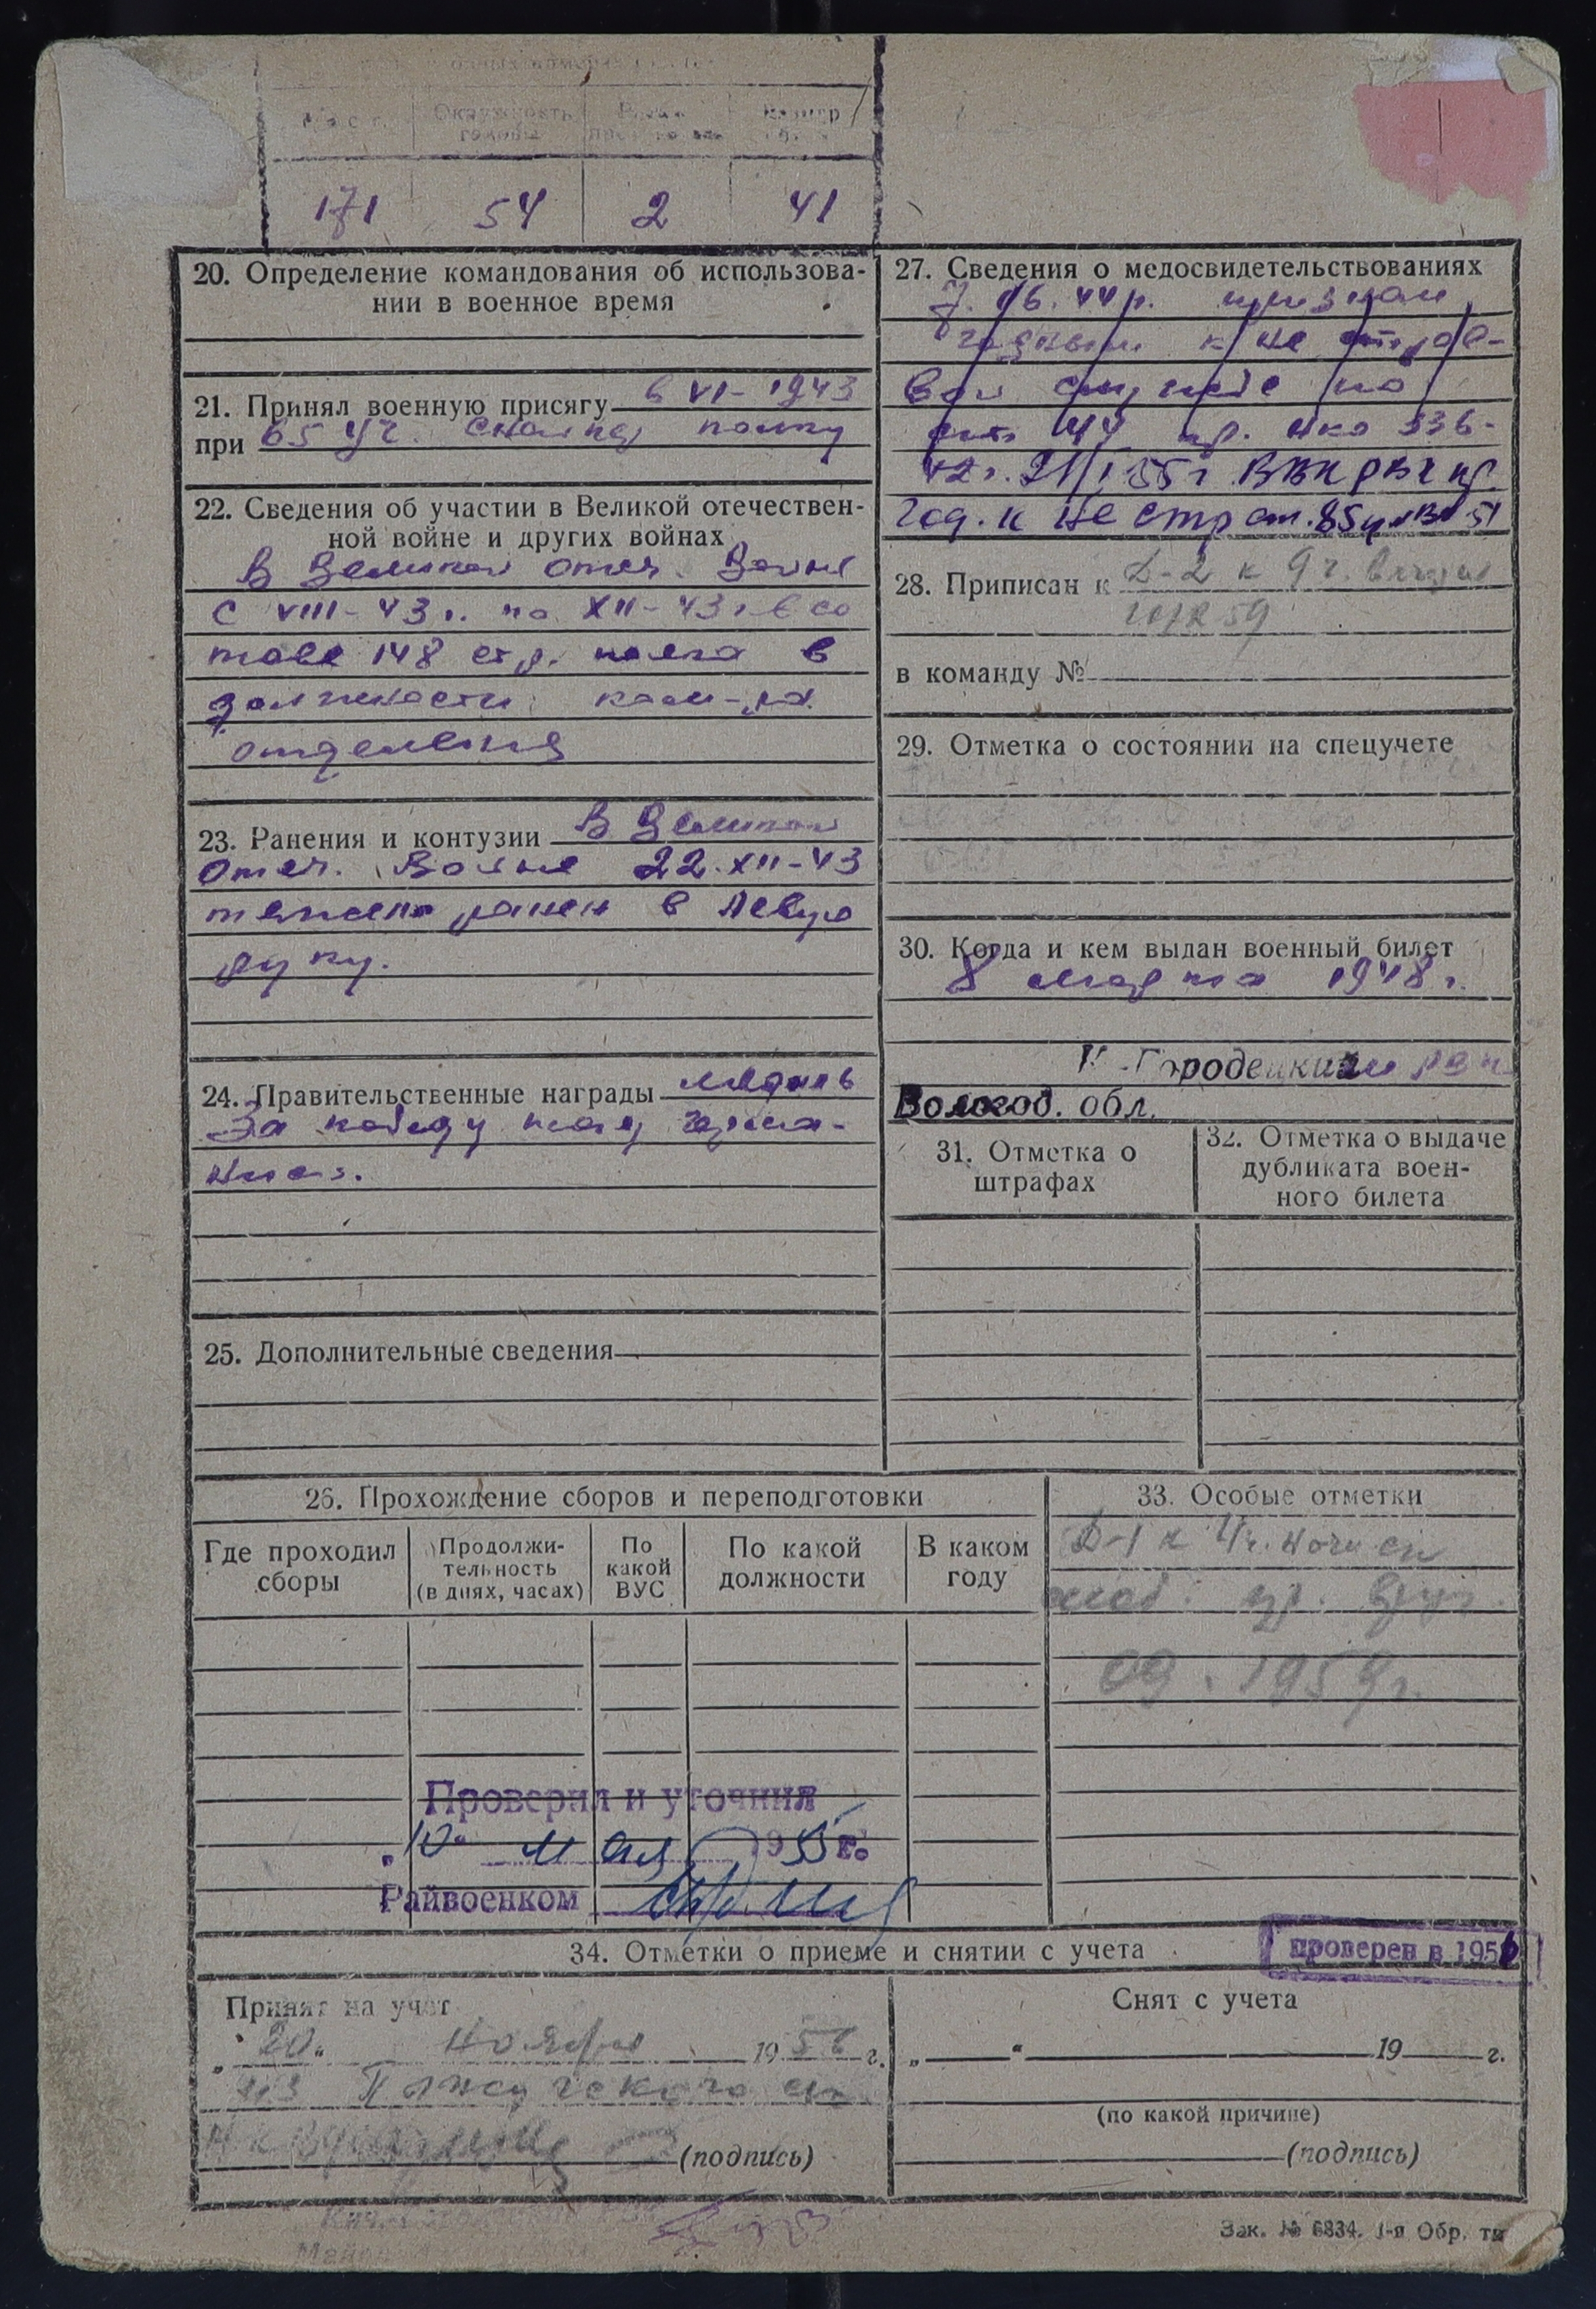 Рост Окружность головы Размер
171 54 2 41
20. Определение командования об использова-
нии в военное время
21. Принял военную присягу в VI - 1943
при 65 уч. полку
22. Сведения об участии в Великой отечествен-
ной войне и других войнах
В Великой отеч. Войне
с VIII - 43 г. по XII - 43 г. в со
таве 148 стр. полка в
должности ком-ра
отделения
23. Ранения и контузии В Великой
отеч. Войне 22. XII - 43
тяжело ранен в левую
руку.
24. Правительственные награды медаль
За победу над Герма-
нией.
25. Дополнительные сведения
27. Сведения о медосвидетельствованиях
7. 06. 44 г. признан
годным к не строе-
вой службе по
ст. 44 пр. НКО 336-
42 г. 21/I 55 г. ВВК РВК пр.
год. к не стр ст. 85 51
28. Приписан к Д-2 к 9 г.
59
в команду №
29. Отметка о состоянии на спецучете
30. Когда и кем выдан военный билет
8 марта 1948 г.
К-Городецким рвк
Вологод. обл.
31. Отметка о
штрафах
32. Отметка о выдаче
дубликата воен-
ного билета
26. Прохождение сборов и переподготовки
Где проходил
сборы
Продолжи-
тельность
(в днях, часах)
По
какой
ВУС
По какой
должности
В каком
году
33. Особые отметки
Д-1 к
моб.
09. 1959 г.
Проверил и уточнил
„10“ мая 1955 г.
Райвоенком
34. Отметки о приеме и снятии с учета
проверен в 1956
Принят на учет
„20“ ноября 1956 г.
из
(подпись)
Снят с учета
„ “ 19 г.
(по какой причине)
(подпись)
Зак. № 6834. 1-я Обр. ти